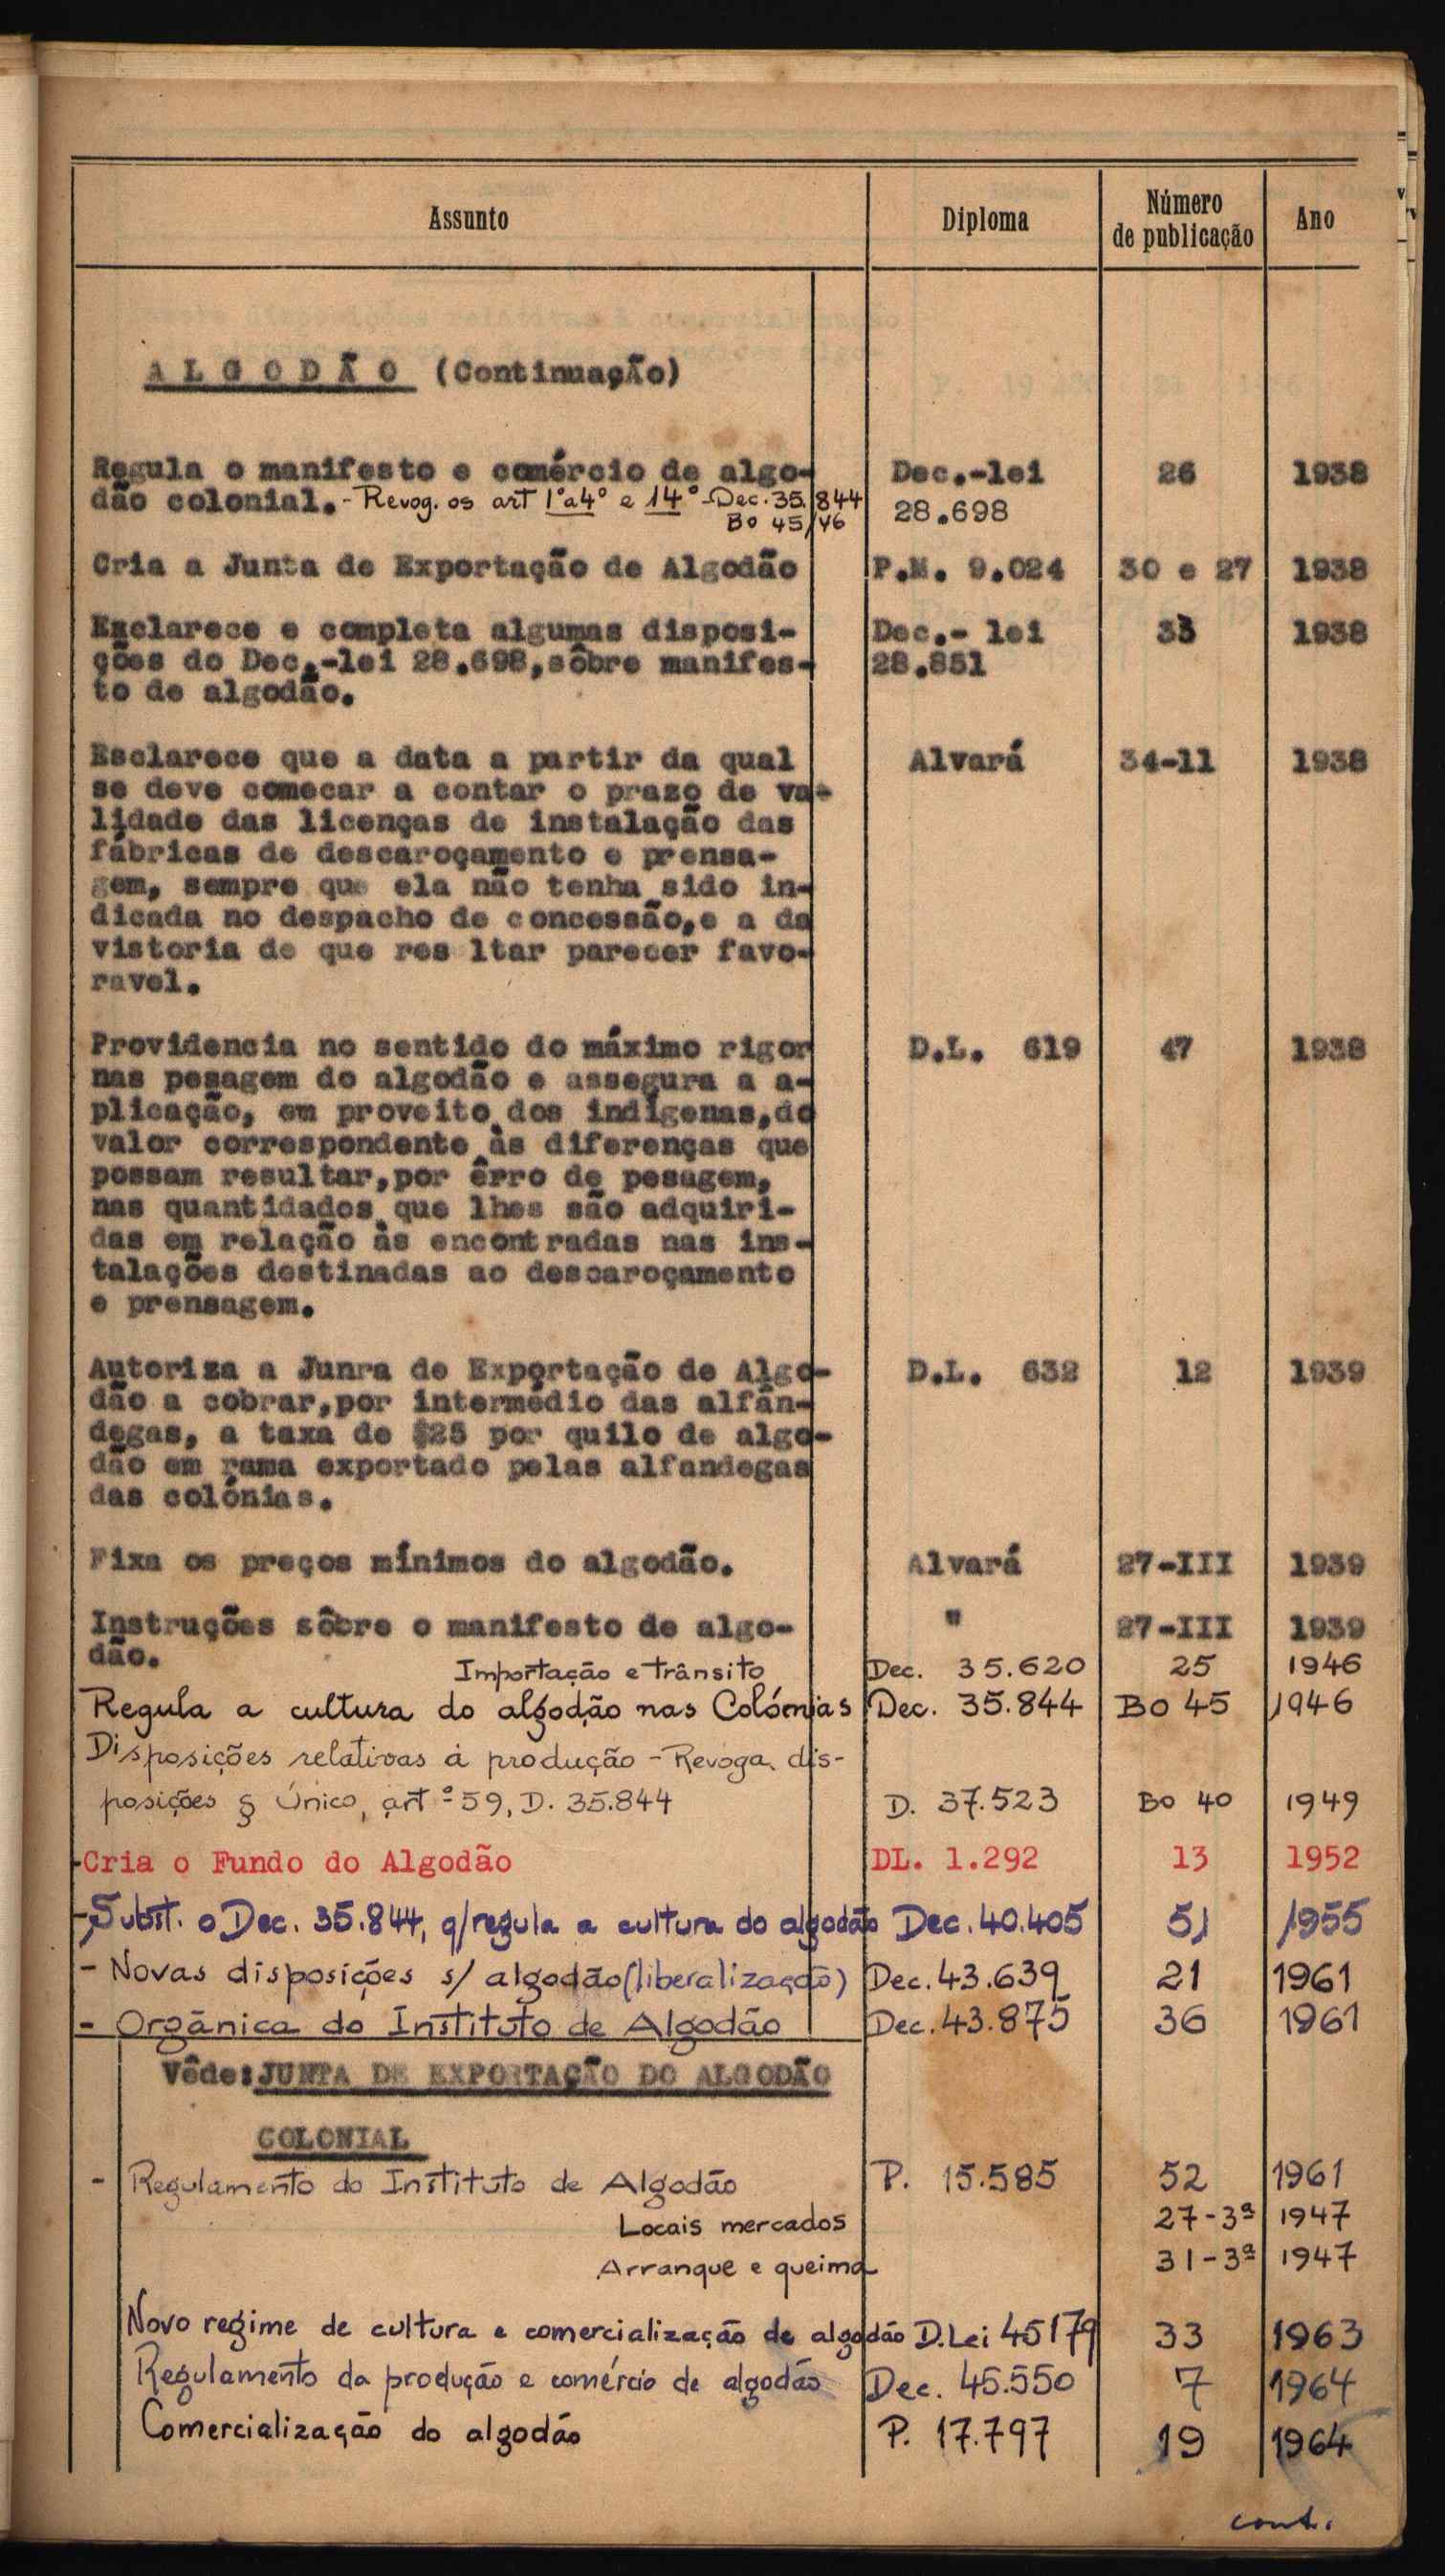 Assunto Diploma Número de publicação Ano
ALGODÃO (Continuação)
Regula o manifesto e comércio de algo- Dec.-lei 26 1938
dão colonial. - Revog. os art 1º a 4º e 14º - Dec. 35.844 28.698
BO 45/46
Cria a Junta de Exportação de Algodão P.M. 9.024 30 e 27 1938
Esclarece e completa algumas disposi- Dec.- lei 33 1938
ções do Dec.-lei 28.698, sôbre manifes- 28.851
to de algodão.
Esclarece que a data a partir da qual Alvará 34-11 1938
se deve comecar a contar o prazo de va-
lidade das licenças de instalação das
fábricas de descaroçamento e prensa-
gem, sempre que ela não tenha sido in-
dicada no despacho de concessão, e a da
vistoria de que res ltar parecer favo-
ravel.
Providencia no sentido do máximo rigor D.L. 619 47 1938
nas pesagem do algodão e assegura a a-
plicação, em proveito dos indígenas, do
valor correspondente às diferenças que
possam resultar, por êrro de pesagem,
nas quantidados que lhes são adquiri-
das em relação às encontradas nas ins-
talações destinadas ao descaroçamento
e prensagem.
Autoriza a Junra de Exportação de Algo- D.L. 632 12 1939
dão a cobrar, por intermédio das alfân-
degas, a taxa de $25 por quilo de algo-
dão em rama exportado pelas alfandegas
das colónias.
Fixa os preços mínimos do algodão. Alvará 27-III 1939
Instruções sôbre o manifesto de algo- " 27-III 1939
dão.
Importação e trânsito Dec. 35.620 25 1946
Regula a cultura do algodão nas Colónias Dec. 35.844 BO 45 1946
Disposições relativas à produção - Revoga dis-
posições § Único, artº 59, D. 35.844 D. 37.523 BO 40 1949
-Cria o Fundo do Algodão DL. 1.292 13 1952
- Subst. o Dec. 35.844, q/regula a cultura do algodão Dec. 40.405 51 1955
- Novas disposições s/ algodão (liberalização) Dec. 43.639 21 1961
- Orgânica do Instituto de Algodão Dec. 43.875 36 1961
Vêde: JUNTA DE EXPORTAÇÃO DO ALGODÃO
COLONIAL
- Regulamento do Instituto de Algodão P. 15.585 52 1961
Locais mercados 27-3ª 1947
Arranque e queima 31-3ª 1947
Novo regime de cultura e comercialização de algodão D.Lei 45179 33 1963
Regulamento da produção e comércio de algodão Dec. 45.550 7 1964
Comercialização do algodão P. 17.797 19 1964
cont.